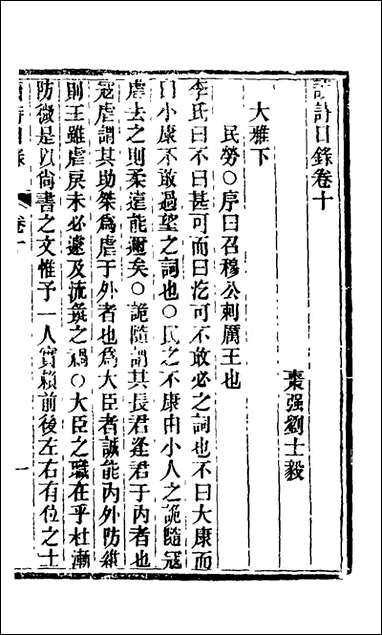 讀詩日錄卷十
棗强劉士毅
大雅下
民勞○序曰召穆公刺厲王也
李氏曰不曰甚可而曰汔可不敢必之詞也不曰大康而
曰小康不敢過望之詞也○民之不康由小人之詭隨寇
虐去之則柔遠能邇矣○詭隨謂其長君逢君于内者也
寇虐謂其助桀為虐于外者也為大臣者誠能内外防維
則王雖虐戾未必遽及流彘之禍○大臣之職在乎杜漸
防微是以尚書之文惟予一人實賴前後左右有位之士
讀詩日錄
卷十
一